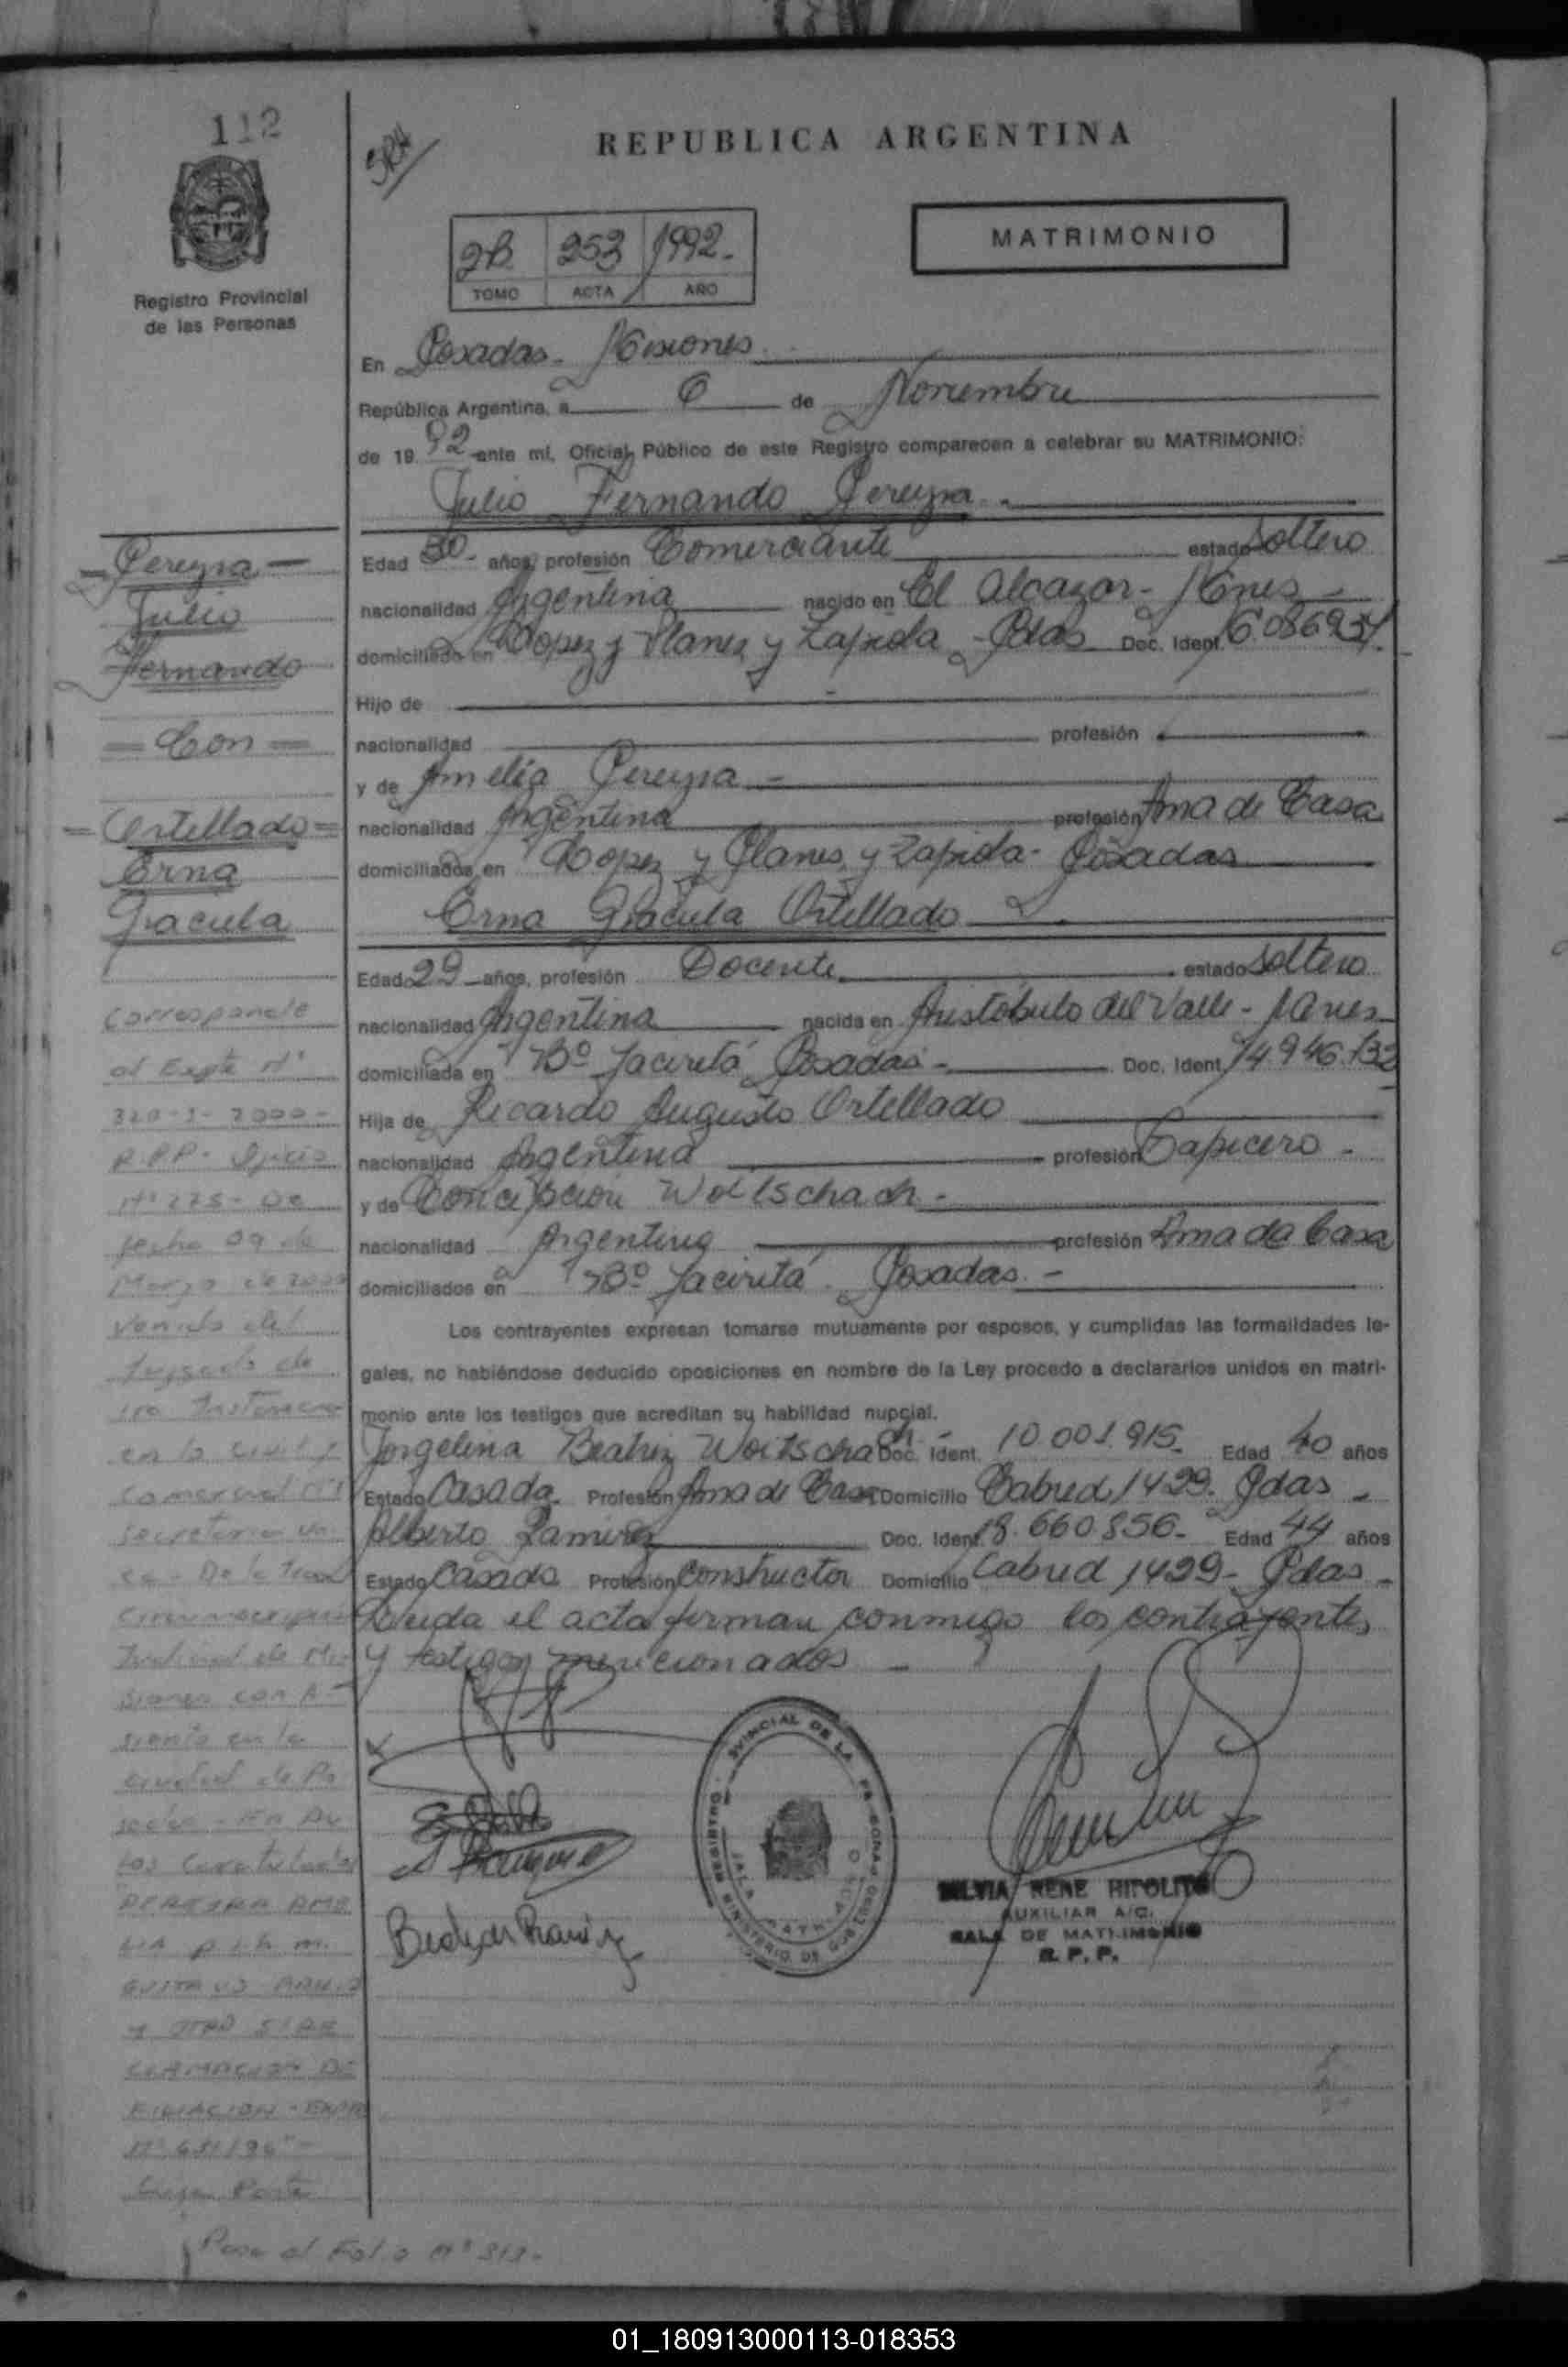 112
REPUBLICA ARGENTINA
MATRIMONIO
2B 253 1992.-
TOMO ACTA AÑO
Registro Provincial
de las Personas
En Posadas - Misiones
República Argentina, a 6 de Noviembre
de 19 92 ante mí, Oficial Público de este Registro comparecen a celebrar su MATRIMONIO:
Julio Fernando Pereyra -
Edad 30 - años, profesión Comerciante estado Soltero
nacionalidad Argentina nacido en El Alcazar - Mnes -
domiciliado en Lopez y Planes y Zapiola - Pdas Doc. Ident. 16.086.937.
Hijo de
nacionalidad profesión
y de Amelia Pereyra -
nacionalidad Argentina profesión Ama de Casa
domiciliados en Lopez y Planes y Zapiola - Posadas
Erna Graciela Ortellado
Edad 29 años, profesión Docente estado Soltero
nacionalidad Argentina nacida en Aristóbulo del Valle - Mnes -
domiciliada en Bº Yaciretá Posadas - Doc. Ident. 14.946.132
Hija de Ricardo Augusto Ortellado
nacionalidad Argentina profesión Tapicero -
y de Concepcion Woitschach -
nacionalidad Argentina profesión Ama de Casa
domiciliados en Bº Yaciretá Posadas. -
Los contrayentes expresan tomarse mutuamente por esposos, y cumplidas las formalidades le-
gales, no habiéndose deducido oposiciones en nombre de la Ley procedo a declararlos unidos en matri-
monio ante los testigos que acreditan su habilidad nupcial.
Jorgelina Beatriz Woitschach - Doc. Ident. 10.001.915- Edad 40 años
Estado Casada Profesión Ama de Casa Domicilio Cabred 1429. Pdas -
Alberto Ramirez Doc. Ident. 8.660.856- Edad 44 años
Estado Casado Profesión Constructor Domicilio Cabred 1429- Pdas -
Leida el acta firman conmigo los contrayentes
y testigos mencionados -
SILVIA RENE HIPOLITO
AUXILIAR A/C.
SALA DE MATRIMONIO
R. P. P.
- Pereyra -
Julio
Fernando
= Con =
= Ortellado =
Erna
Graciela
Corresponde
al Expte Nº
320-1-2000-
R.P.P- Oficio
Nº 275- De
fecha 09 de
Marzo de 2000
Venido del
Juzgado de
1ro Instancia
en lo Civil y
Comercial Nº1
Secretaria
Judicial de Mi-
siones con A-
siento en la
ciudad de Po
sadas - En Au
tos Caratulados
PEREYRA AME
LIA
Y OTRO S/ RE
CLAMACION DE
FILIACION - EXPTE
Pasa al Folio Nº 313-
01_180913000113-018353